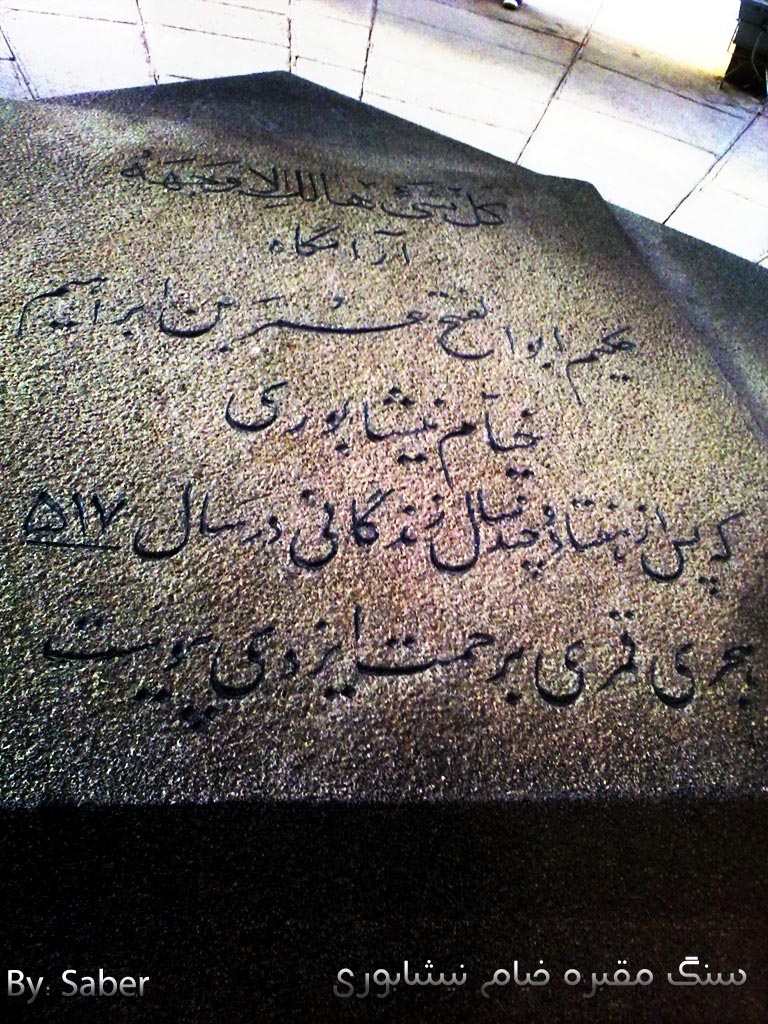 کل شیء هالک الا وجهه
آرامگاه
حکیم ابوالفتح عمر بن ابراهیم
خیام نیشابوری
که پس از هفتاد و چند سال زندگانی در سال ۵۱۷
هجری قمری برحمت ایزدی پیوست
By: Saber
سنگ مقبره خیام نیشابوری